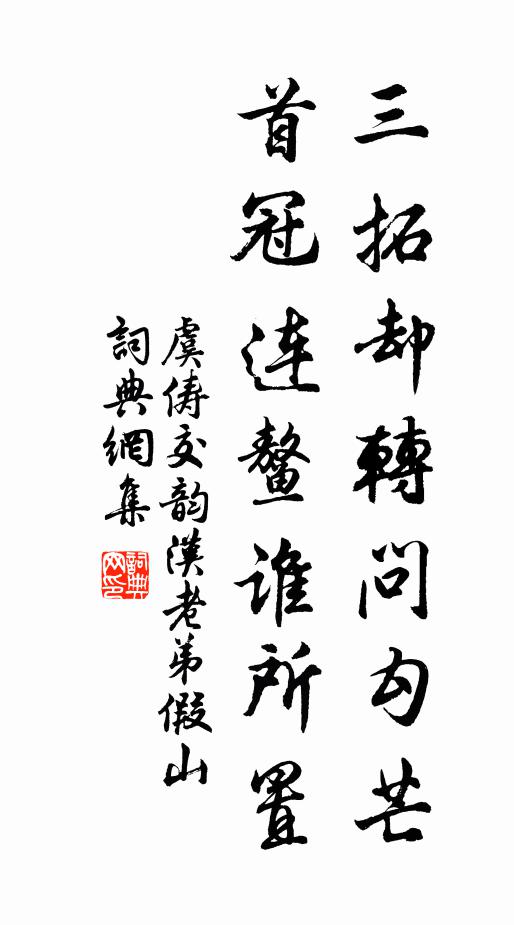 三拓却轉問勾芒
首冠連鰲誰所置
虞儔交韵漢老弟假山
詞典網集
詞典网印